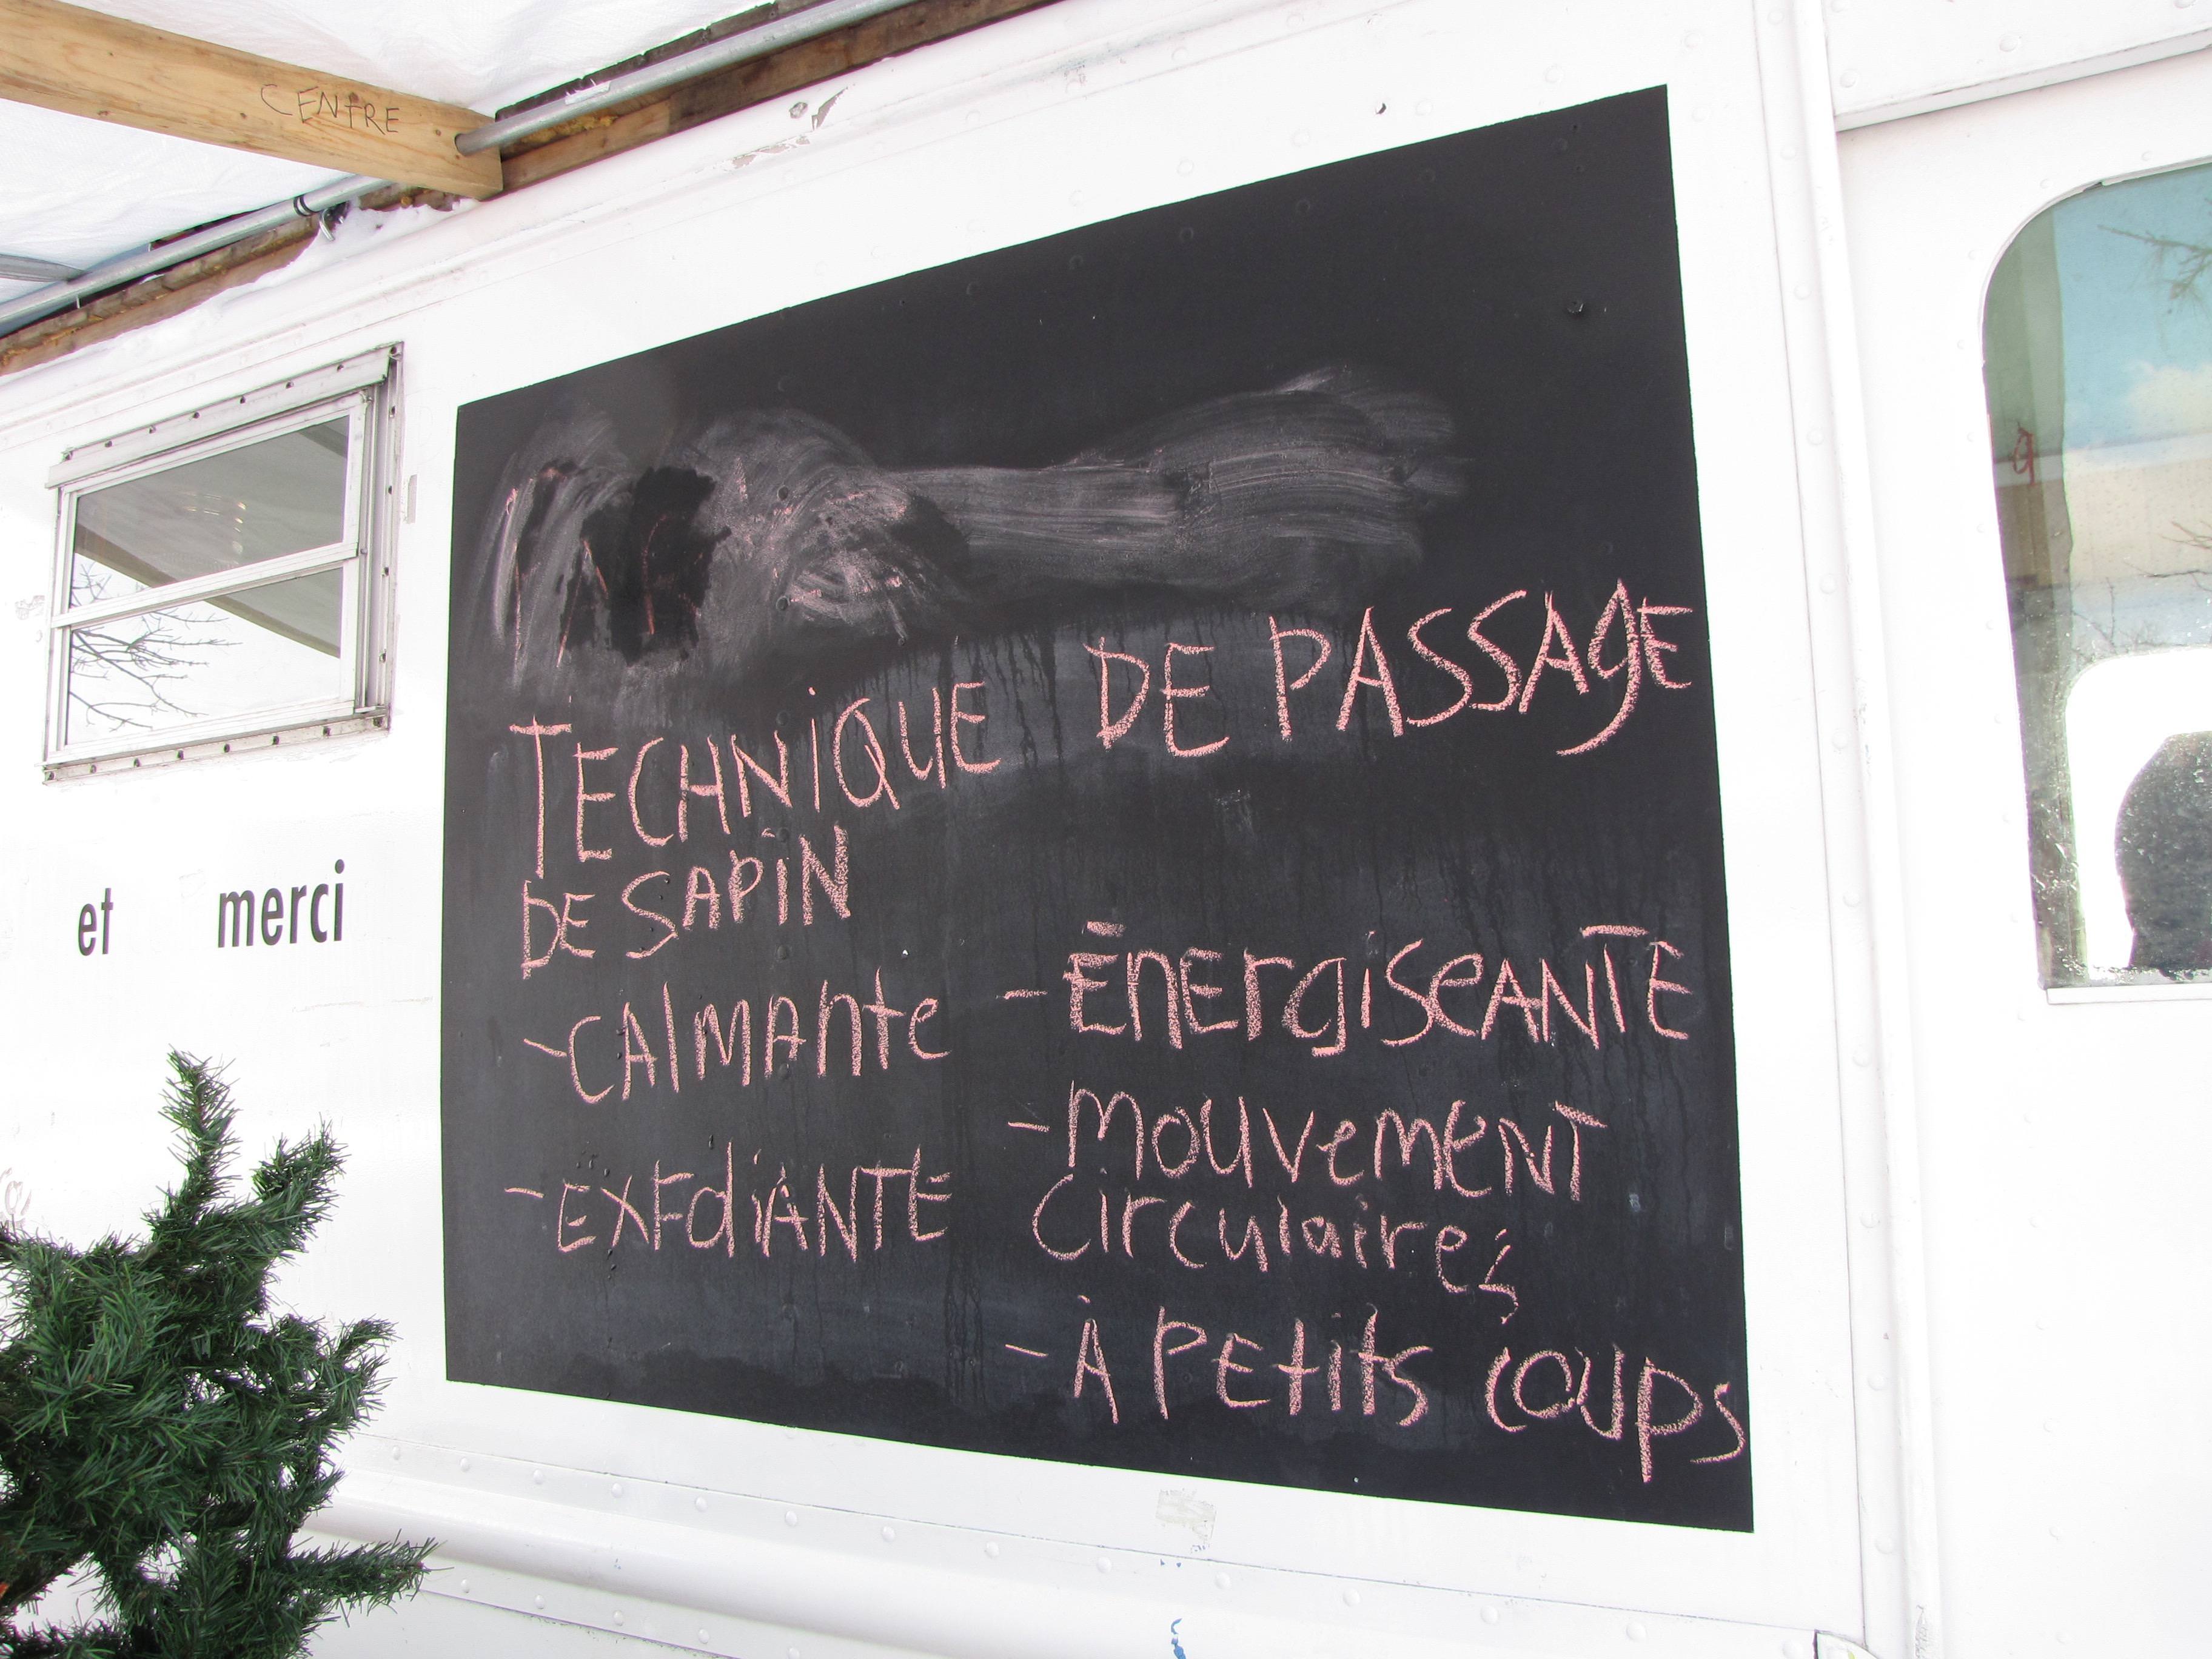 CENTRE
et merci
TECHNIQUE DE PASSAGE
DE SAPIN
- CAlMAnte
- EXFOlIANTE
- ÉnErgiSeANTE
- MouveMENT
Circulaires
- À PEtits coups